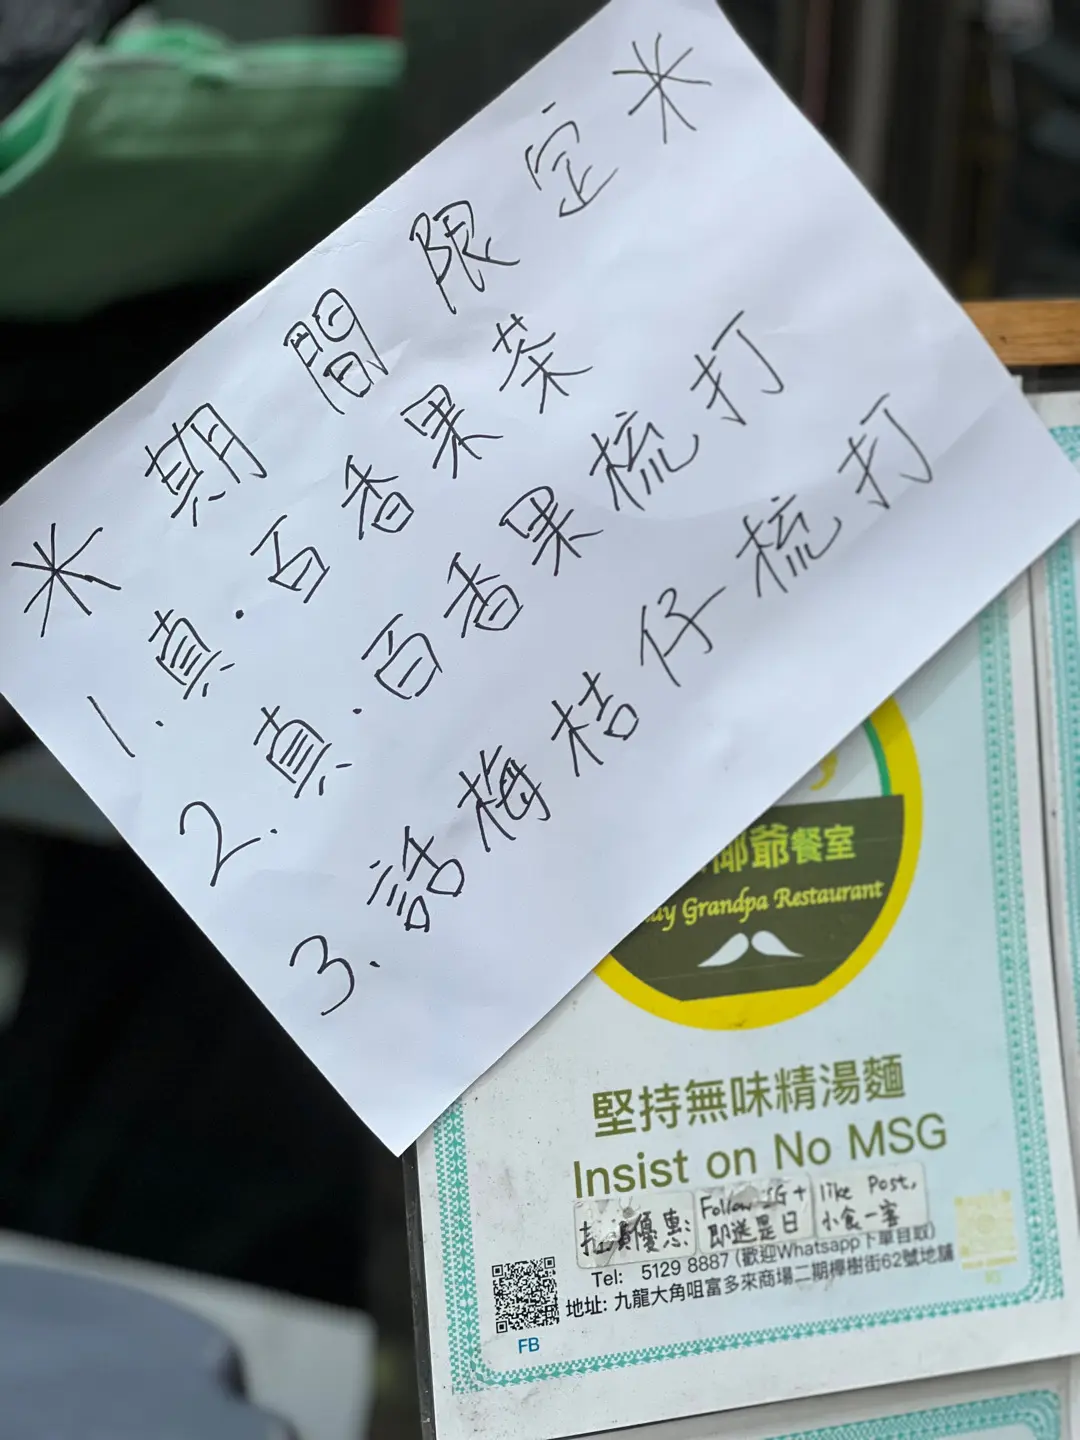 米 期間限定 米
1. 真·百香果茶
2. 真·百香果梳打
3. 話梅桔仔梳打
爺餐室
Grandpa Restaurant
堅持無味精湯麵
Insist on No MSG
優惠: Follow IG + like Post,
即送是日小食一客
Tel: 5129 8887 (歡迎Whatsapp下單自取)
地址: 九龍大角咀富多來商場二期櫸樹街62號地舖
FB